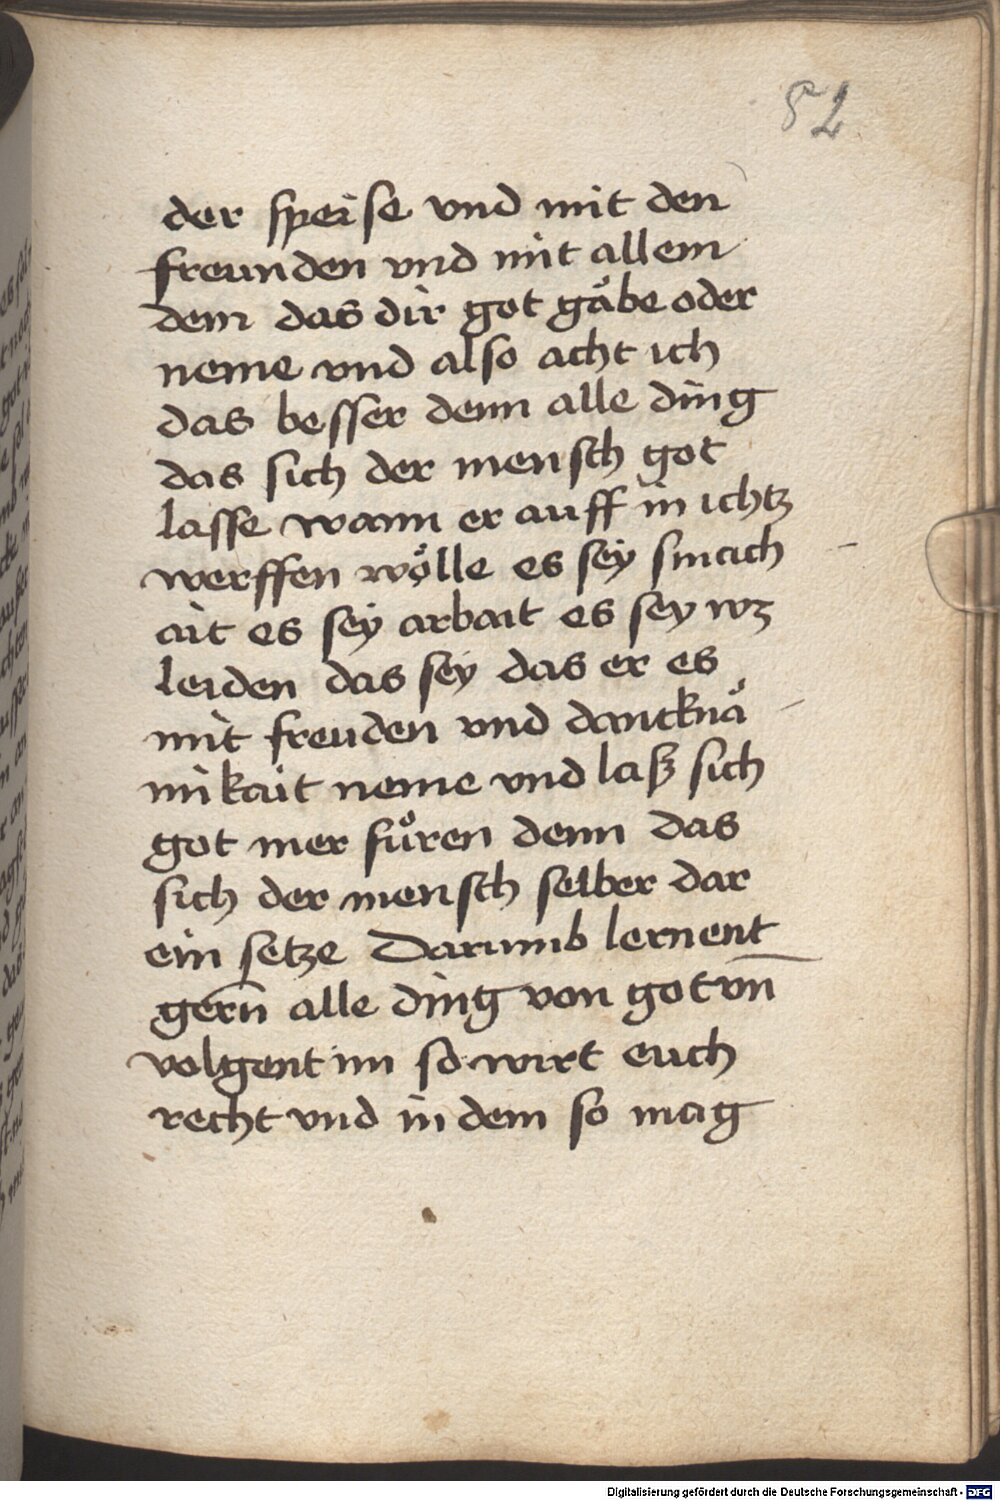 52
der speise vnd mit den
freunden vnd mit allem
dem das dir got gåbe oder
neme vnd also acht ich
das besser denn alle ding
das sich der mensch got
lasse wann er auff in ichtz
werffen wo̊lle es sey smach
ait es sey arbait es sey wz
leiden das sey das er es
mit freuden vnd dancknå
mikait neme vnd laß sich
got mer fůren denn das
sich der mensch selber dar
ein setze Darumb lernent
gern̄ alle ding von got vn̄
volgent im so wirt euch
recht vnd in dem so mag
Digitalisierung gefördert durch die Deutsche Forschungsgemeinschaft - DFG